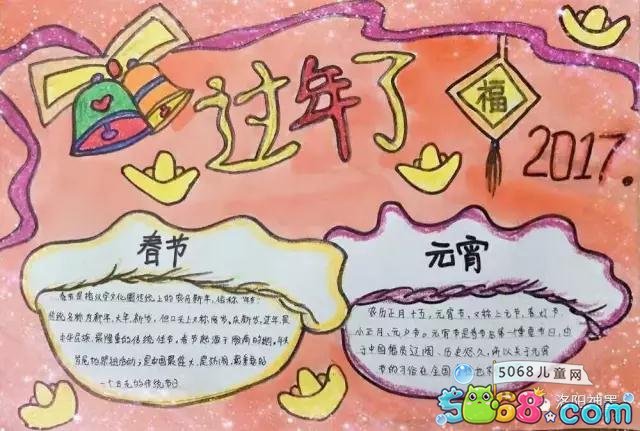 过年了
福
2017.
春节
春节是指汉字文化圈传统上的农历新年，俗称“年节”
传统名称为新年、大年、新岁，但口头上又称度岁、庆新岁、过年，是
中华民族最隆重的传统佳节。春节起源于殷商时期，年头
岁尾
中国最
一古老的传统节日
元宵
农历正月十五，元宵节，又称上元节、春灯节、
小正月、元夕
元宵节是春节后第一个重要节日，由
于中国幅员辽阔，历史悠久，所以关于元宵
节的习俗在全国
5068儿童网
5068.com
洛阳神墨